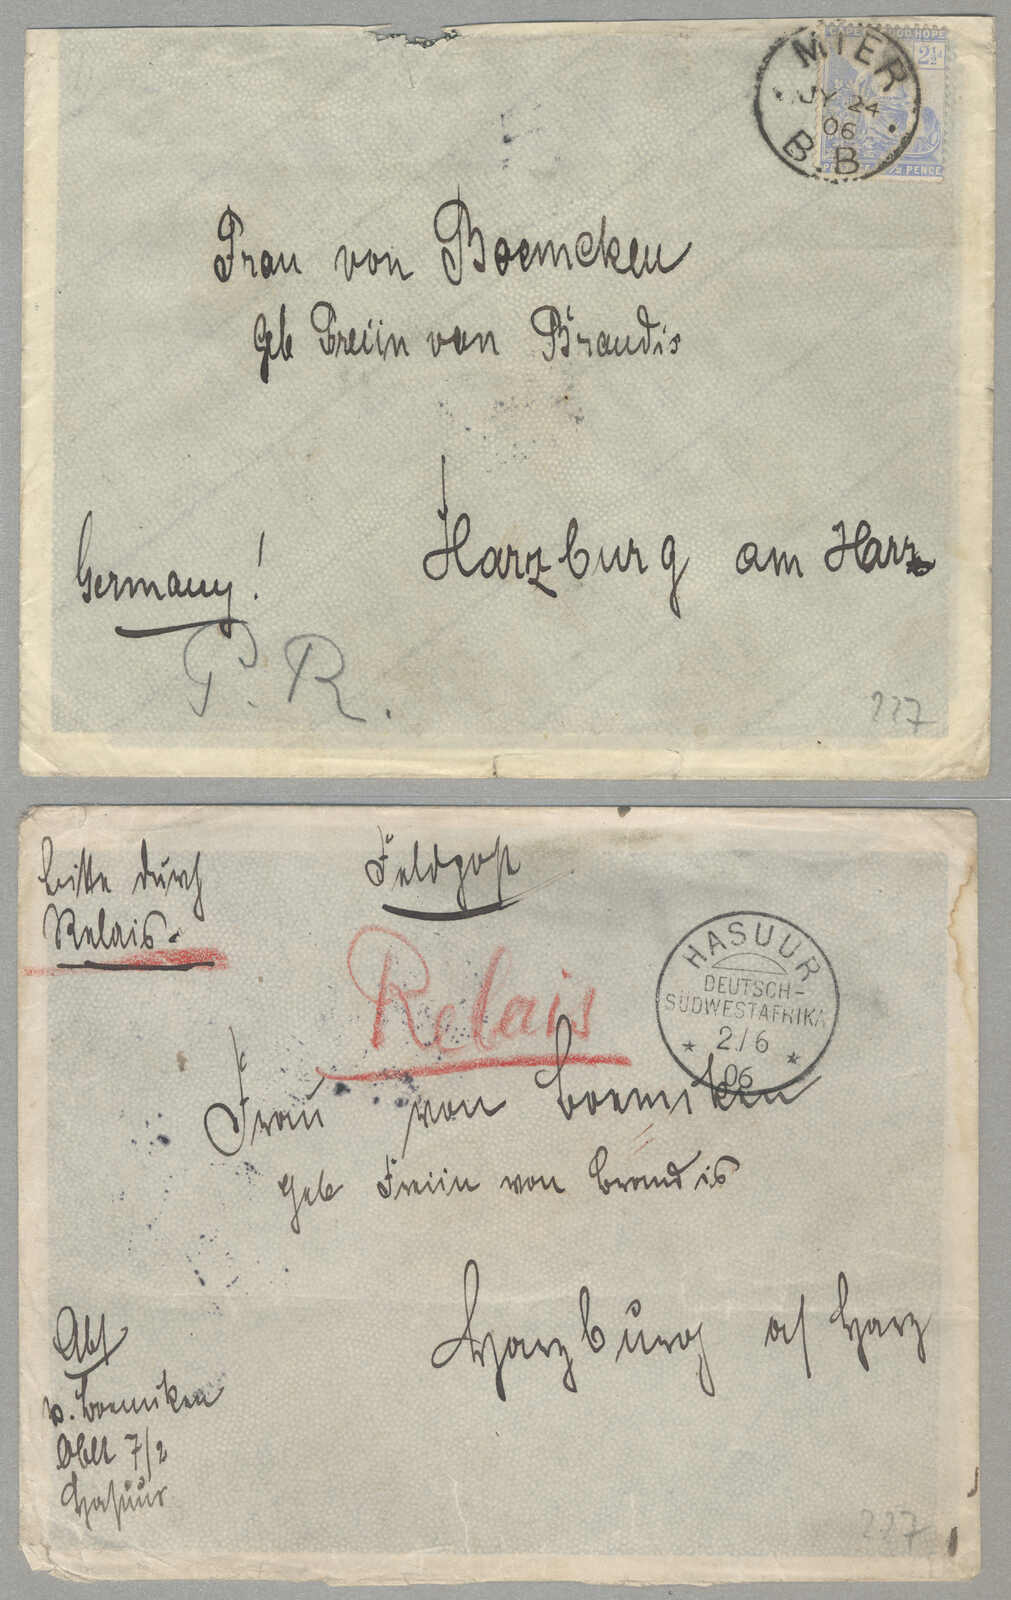 MIER
JY 24
06
B.B
2½
Frau von Boemcken
geb Freiin von Brandis
Harzburg am Harz
Germany!
P.R.
227
bitte durch
Relais.
Feldpost
Relais
HASUUR
DEUTSCH-
SÜDWESTAFRIKA
2/6
06
Frau von Boemcken
geb Freiin von Brandis
Harzburg a/Harz
Abs
v. Boemcken
Oblt 7/2
Hasuur
227